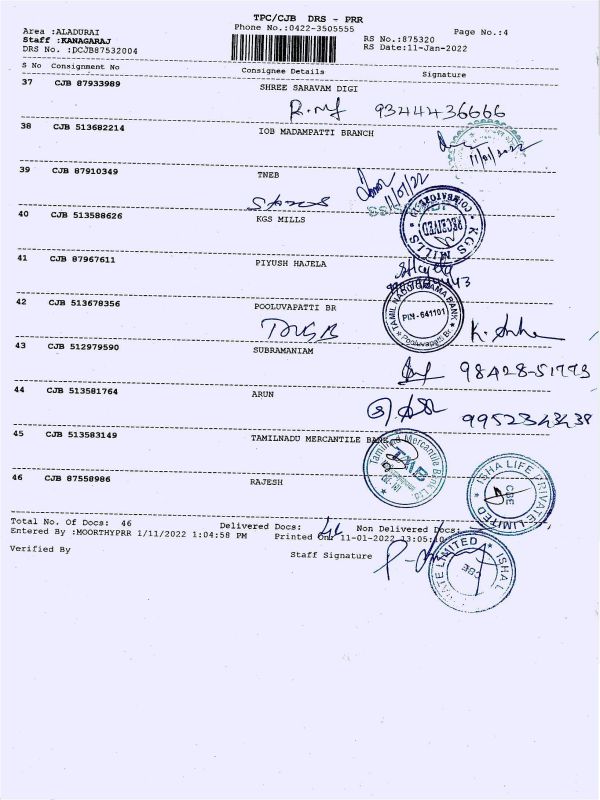 TPC/CJB DRS - PRR
Phone No.:0422-3505555
Page No.:4
Area :ALADURAI
Staff :KANAGARAJ
DRS No. :DCJB87532004
RS No.:875320
RS Date:11-Jan-2022
S No Consignment No Consignee Details Signature
37 CJB 87933989 SHREE SARAVAM DIGI
9344436666
38 CJB 513682214 IOB MADAMPATTI BRANCH
11/01/2022
39 CJB 87910349 TNEB
11/01/22
40 CJB 513588626 KGS MILLS
KGS MILLS COIMBATORE RECEIVED
41 CJB 87967611 PIYUSH HAJELA
42 CJB 513678356 POOLUVAPATTI BR
TAMIL NADU GRAMA BANK PIN-641101 Pooluvapatti Br.
43 CJB 512979590 SUBRAMANIAM
98428-51773
44 CJB 513581764 ARUN
9952343438
45 CJB 513583149 TAMILNADU MERCANTILE BANK
Tamilnad Mercantile Bank Ltd. TMB
46 CJB 87558986 RAJESH
ISHA LIFE PRIVATE LIMITED CBE
Total No. Of Docs: 46 Delivered Docs: Non Delivered Docs:
Entered By :MOORTHYPRR 1/11/2022 1:04:58 PM Printed On: 11-01-2022 13:05:10
Verified By Staff Signature
ISHA L VATE LIMITED CBE